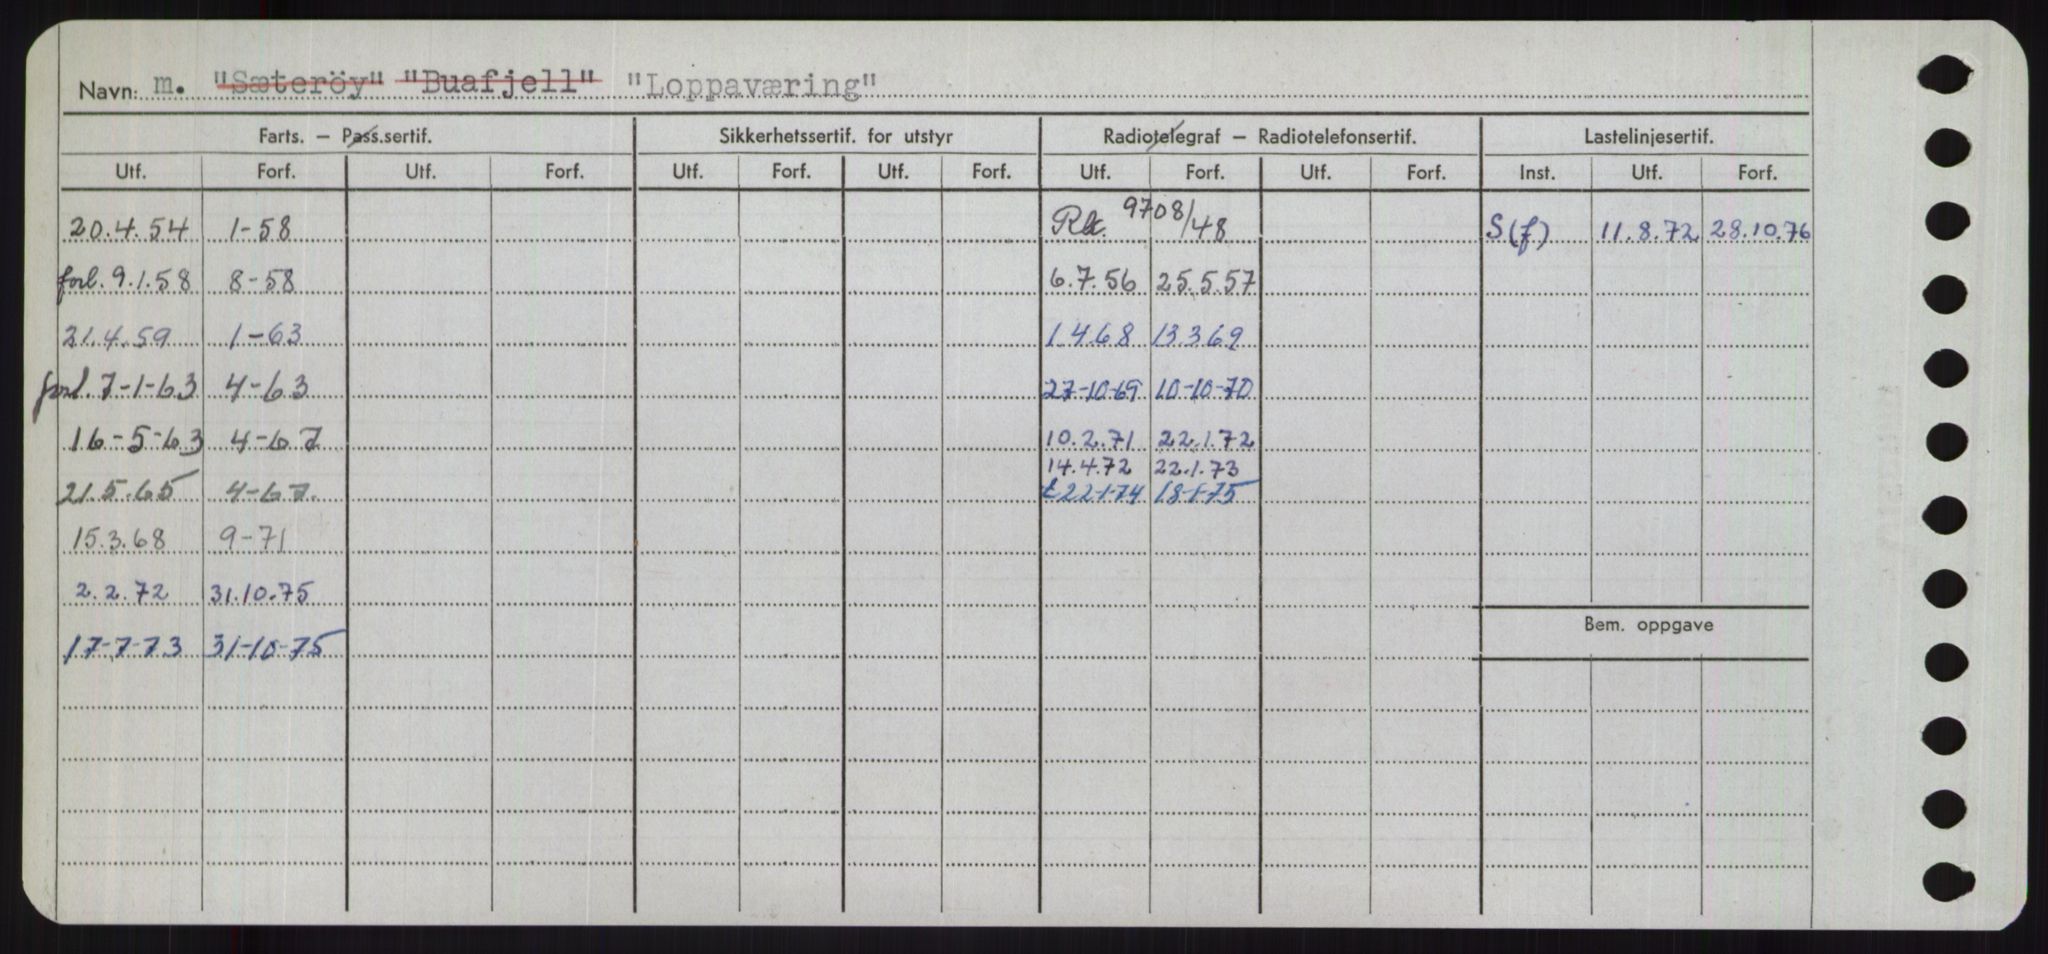 Navn: m. "Sæteröy" "Buafjell" "Loppaværing"
Farts. — Pass.sertif. Sikkerhetssertif. for utstyr Radiotelegraf — Radiotelefonsertif. Lastelinjesertif.
Utf. Forf. Utf. Forf. Utf. Forf. Utf. Forf. Utf. Forf. Utf. Forf. Inst. Utf. Forf.
20.4.54 1-58 Rlt. 9708/48 S(f) 11.8.72 28.10.76
forl. 9.1.58 8-58 6.7.56 25.5.57
21.4.59 1-63 1468 13369
forl. 7-1-63 4-63 27-10-69 10-10-70
16-5-63 4-67 10.2.71 22.1.72
14.4.72 22.1.73
21.5.65 4-67. 22-1-74 18-1-75
15.3.68 9-71
2.2.72 31.10.75
Bem. oppgave
17-7-73 31-10-75